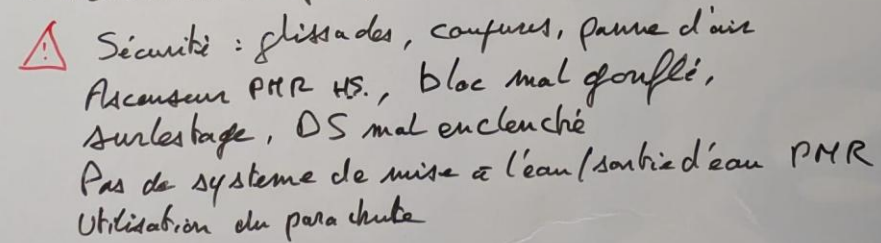 ! Sécurité : glissades, coupures, panne d'air
Ascenseur PMR HS., bloc mal gonflé,
surlestage, DS mal enclenché
Pas de système de mise à l'eau/sortie d'eau PMR
Utilisation du parachute